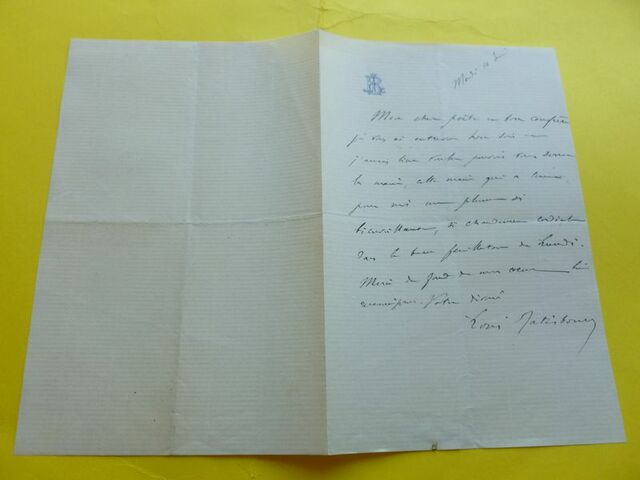 Mardi
Mon cher poète et bon confrère
je vous ai entrevu hier soir et
j'aurais bien voulu pouvoir vous donner
la main, cette main qui a
pour moi une plume si
bienveillante, si chaudement cordiale
dans le beau feuilleton du Lundi.
Merci du fond de mon cœur
Votre dévoué
Louis Ratisbonne